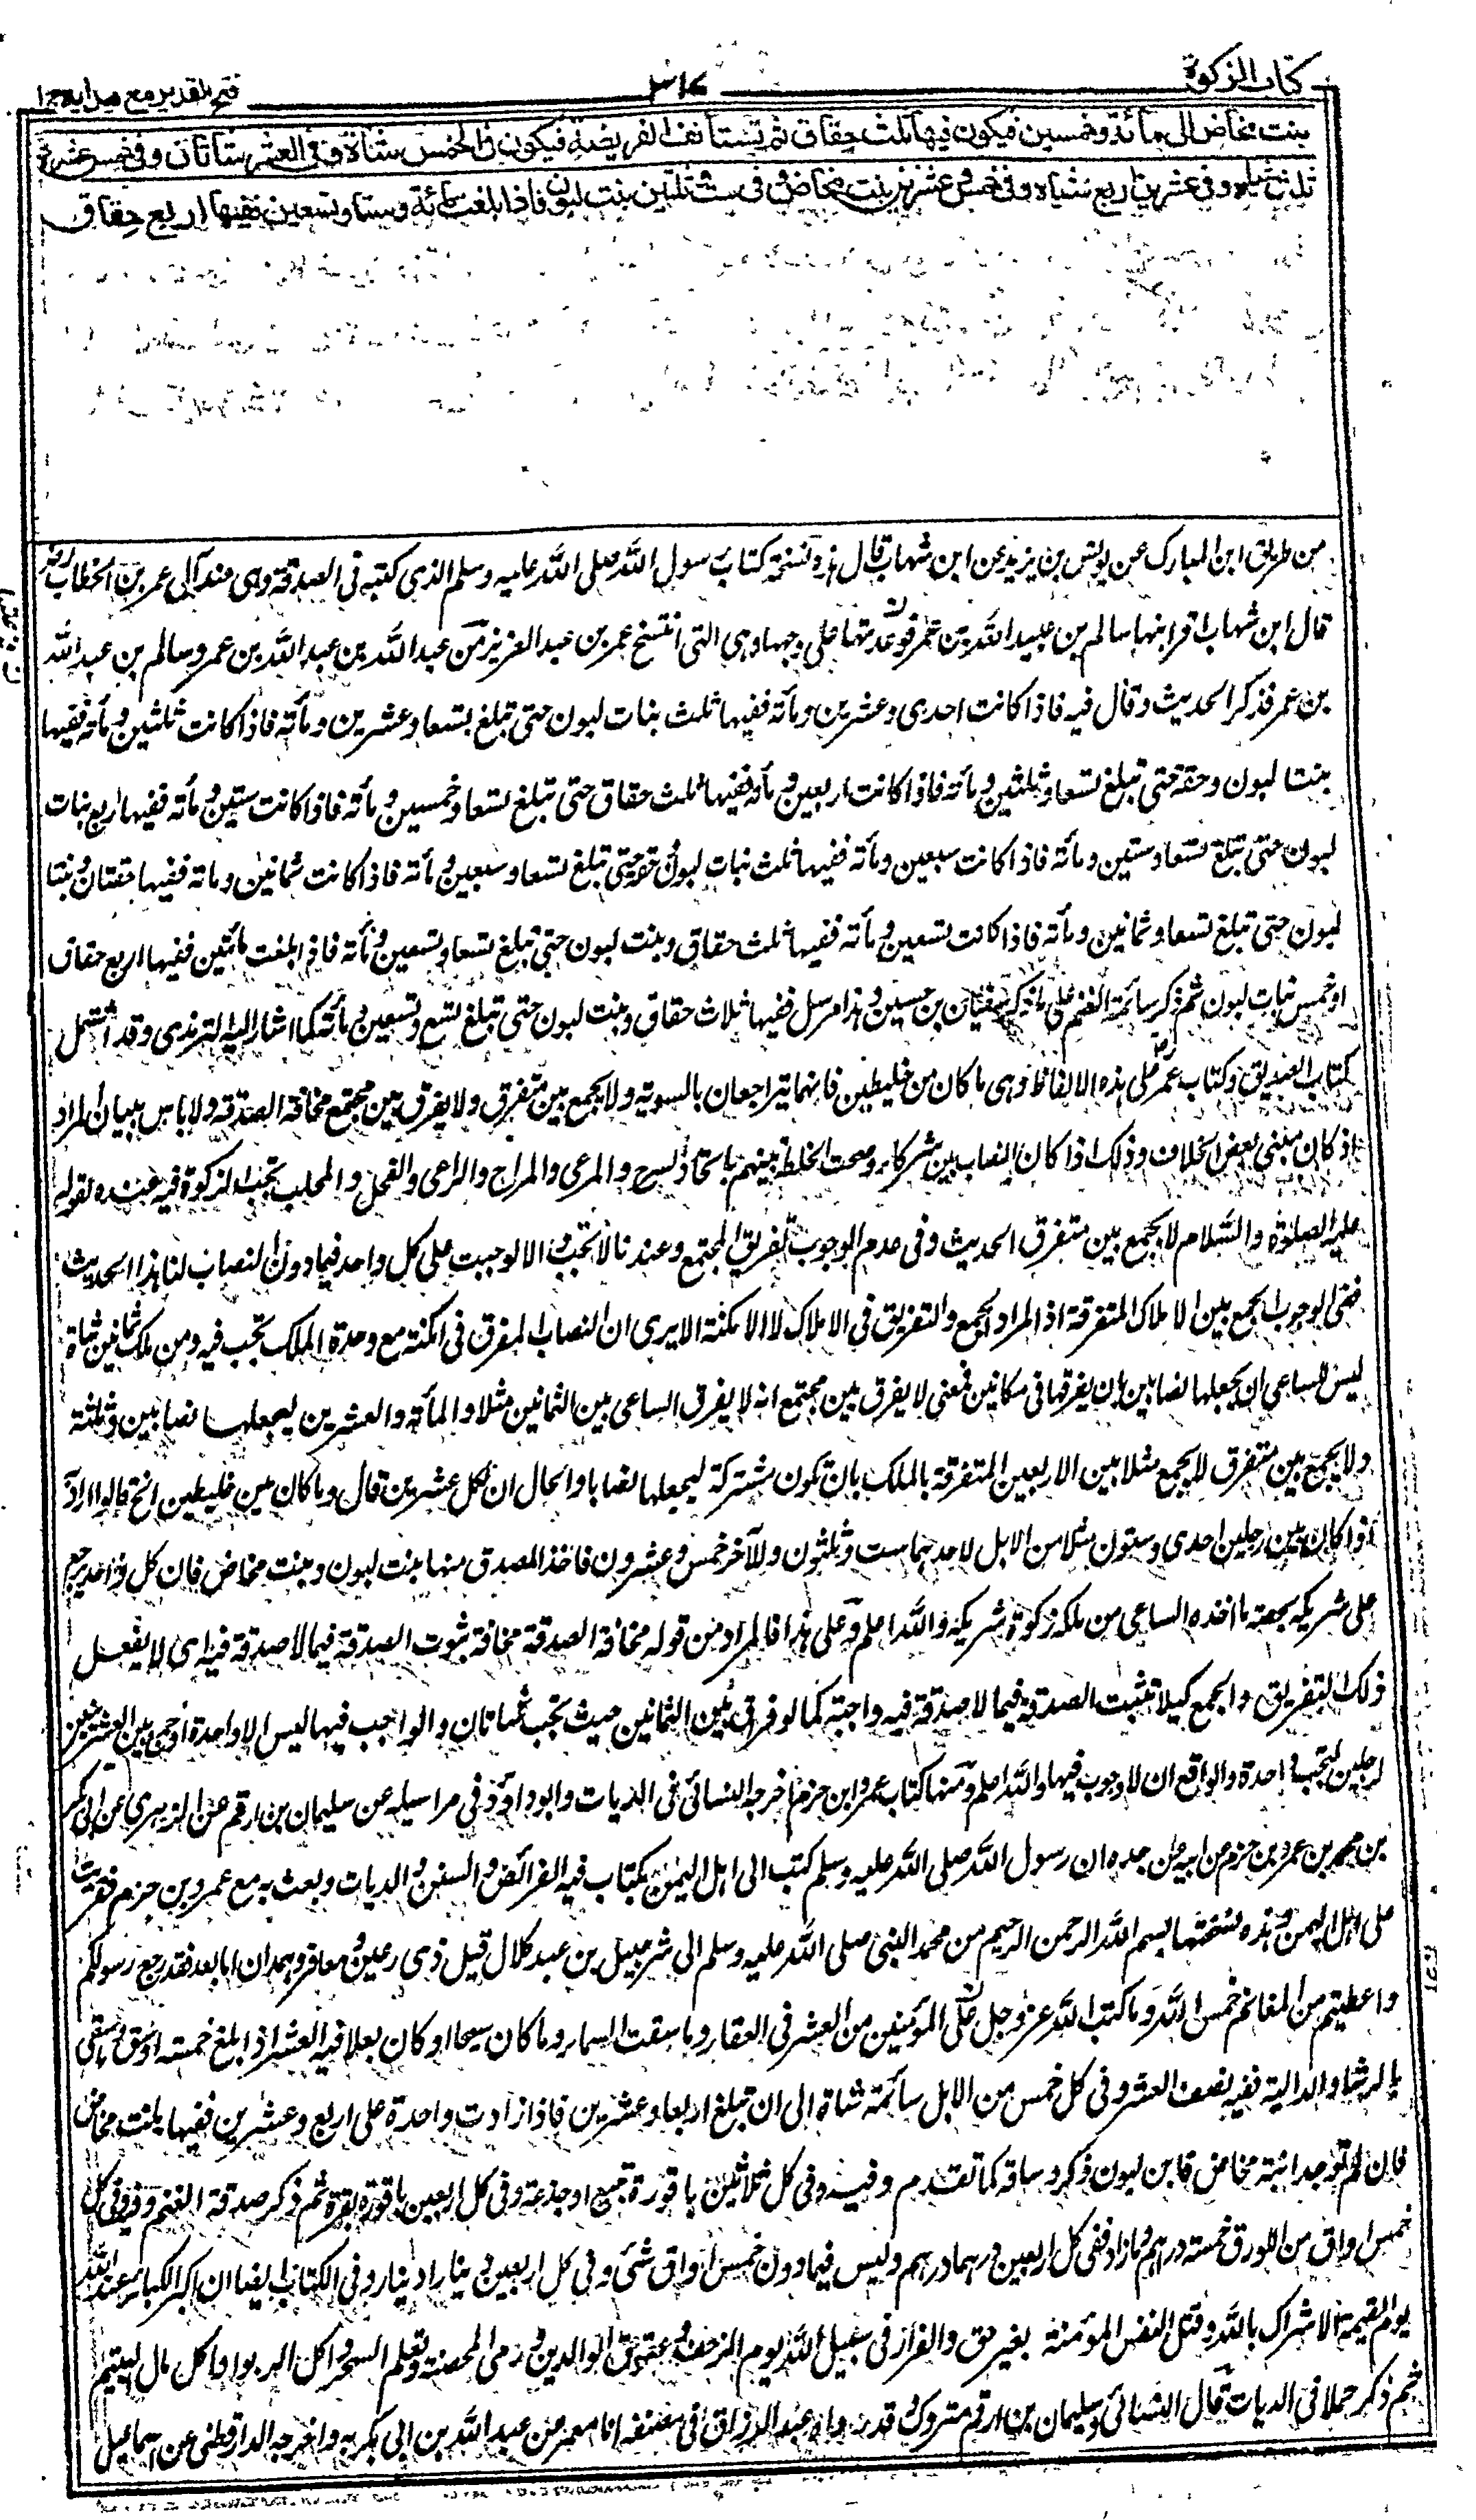 كتاب الزكوة
٣١٤
فتح القدير مع هدايه ج ا
بنت مخاض الى مائة وخمسين فيكون فيها ثلث حقاق ثم تستأنف الفريضة فيكون فى الخمس شاة وفى العشر شاتان وفى خمس عشرة
ثلث شياه وفى عشرين اربع شياه وفى خمس وعشرين بنت مخاض وفى ست وثلثين بنت لبون فاذا بلغت مائة وستا وتسعين ففيها اربع حقاق
من طريق ابن المبارك عن يونس بن يزيد عن ابن شهاب قال هذه نسخة كتاب رسول الله صلى الله عليه وسلم الذى كتبه فى الصدقة وهى عند آل عمر بن الخطاب رض
قال ابن شهاب اقرأنيها سالم بن عبيد الله بن عمر فوعيتها على وجهها وهى التى انتسخ عمر بن عبد العزيز من عبد الله بن عبد الله بن عمر وسالم بن عبد الله
بن عمر فذكر الحديث وقال فيه فاذا كانت احدى وعشرين ومأته ففيها ثلث بنات لبون حتى تبلغ تسعا وعشرين ومأته فاذا كانت ثلثين ومأته ففيها
بنتا لبون وحقة حتى تبلغ تسعا وثلثين ومأته فاذا كانت اربعين ومأته ففيها ثلث حقاق حتى تبلغ تسعا وخمسين ومأته فاذا كانت ستين ومأته ففيها اربع بنات
لبون حتى تبلغ تسعا وستين ومأته فاذا كانت سبعين ومأته ففيها ثلث بنات لبون وحقة حتى تبلغ تسعا وسبعين ومأته فاذا كانت ثمانين ومأته ففيها حقتان وبنتا
لبون حتى تبلغ تسعا وثمانين ومأته فاذا كانت تسعين ومأته ففيها ثلث حقاق وبنت لبون حتى تبلغ تسعا وتسعين ومأته فاذا بلغت مأتين ففيها اربع حقاق
او خمس بنات لبون ثم ذكر سائمة الغنم على ما ذكر سفيان بن حسين وهذا مرسل ففيها ثلاث حقاق وبنت لبون حتى تبلغ تسع وتسعين ومأته كما اشار اليه الترمذى وقد اشتمل
كتاب الصديق وكتاب عمر على هذه الالفاظ وهى ما كان من خليطين فانهما يتراجعان بالسوية ولا يجمع بين متفرق ولا يفرق بين مجتمع مخافة الصدقة ولا باس ببيان المراد
اذ كان مبنى بعض الخلاف وذلك اذا كان النصاب بين شركاء وصحت الخلطة بينهم باتحاد المسرح والمرعى والمراح والراعى والفحل والمحلب تجب الزكوة فيه عنده لقوله
عليه الصلوة والسلام لا يجمع بين متفرق الحديث وفى عدم الوجوب تفريق المجتمع وعندنا لا تجب والا لوجبت على كل واحد فيما دون النصاب لنا هذا الحديث
ففى الوجوب الجمع بين الاملاك المتفرقة اذ المراد الجمع والتفريق فى الاملاك لا الامكنة الا يرى ان النصاب المفرق فى امكنة مع وحدة الملك تجب فيه ومن ملك ثمانين شاة
ليس للساعى ان يجعلها نصابين بان يفرقها فى مكانين فمعنى لا يفرق بين مجتمع انه لا يفرق الساعى بين الثمانين مثلا او المأة والعشرين ليجعلها نصابين وثلثة
ولا يجمع بين متفرق لا يجمع مثلا بين الاربعين المتفرقة بالملك بان تكون مشتركة ليجعلها نصابا والحال ان لكل عشرين قال وما كان من خليطين الخ قالوا اراد
اذا كان بين رجلين احدى وستون مثلا من الابل لاحدهما ست وثلثون وللآخر خمس وعشرون فاخذ المصدق منها بنت لبون وبنت مخاض فان كل واحد يرجع
على شريكه بحصة ما اخذه الساعى من ملكه زكوة شريكه والله اعلم وعلى هذا فالمراد من قوله مخافة الصدقة مخافة ثبوت الصدقة فيما لا صدقة فيه اى لا يفعل
ذلك التفريق والجمع كيلا تثبت الصدقة فيما لا صدقة فيه واجبة كما لو فرق بين الثمانين حيث تجب شاتان والواجب فيها ليس الا واحدة او جمع بين العشرين
لرجلين لتجب واحدة والواقع ان لا وجوب فيها والله اعلم ومنها كتاب عمرو ابن حزم اخرجه النسائى فى الديات وابو داؤد فى مراسيله عن سليمان بن ارقم عن الزهرى عن ابى بكر
بن محمد بن عمرو بن حزم عن ابيه عن جده ان رسول الله صلى الله عليه وسلم كتب الى اهل اليمن بكتاب فيه الفرائض والسنن والديات وبعث به مع عمرو بن حزم فقرئت
على اهل اليمن وهذه نسختها بسم الله الرحمن الرحيم من محمد النبى صلى الله عليه وسلم الى شرحبيل بن عبد كلال قيل ذى رعين ومعافر وهمدان اما بعد فقد رجع رسولكم
واعطيتم من المغانم خمس الله وما كتب الله عز وجل على المؤمنين من العشر فى العقار وما سقت السماء وما كان سيحا او كان بعلا فيه العشر اذا بلغ خمسة اوسق وما سقى
بالرشا والدالية ففيه نصف العشر وفى كل خمس من الابل سائمة شاة الى ان تبلغ اربعا وعشرين فاذا زادت واحدة على اربع وعشرين ففيها بنت مخاض
فان لم توجد ابنة مخاض فابن لبون ذكر وساقه كما تقدم وفيه وفى كل ثلاثين باقورة تبيع او جذعة وفى كل اربعين باقورة بقرة ثم ذكر صدقة الغنم وفيه وفى كل
خمس اواق من الورق خمسة دراهم وما زاد ففى كل اربعين درهما درهم وليس فيما دون خمس اواق شئ وفى كل اربعين دينارا دينار وفى الكتاب ايضا ان اكبر الكبائر عند الله
يوم القيمة الاشراك بالله وقتل النفس المؤمنة بغير حق والفرار فى سبيل الله يوم الزحف وعقوق الوالدين ورمى المحصنة وتعلم السحر واكل الربوا واكل مال اليتيم
ثم ذكر جملا فى الديات قال النسائى وسليمان بن ارقم متروك وقد رواه عبد الرزاق فى مصنفه انا معمر عن عبد الله بن ابى بكر به واخرجه الدارقطنى عن اسماعيل